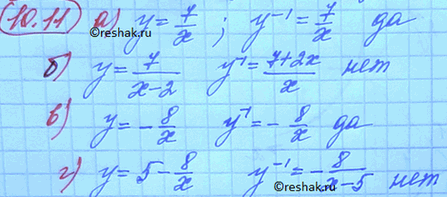 10.11 а) y = 7/x ; y⁻¹ = 7/x да
©reshak.ru
б) y = 7/(x-2) y⁻¹ = (7+2x)/x нет
в) y = -8/x y⁻¹ = -8/x да
г) y = 5 - 8/x y⁻¹ = -8/(x-5) нет
©reshak.ru